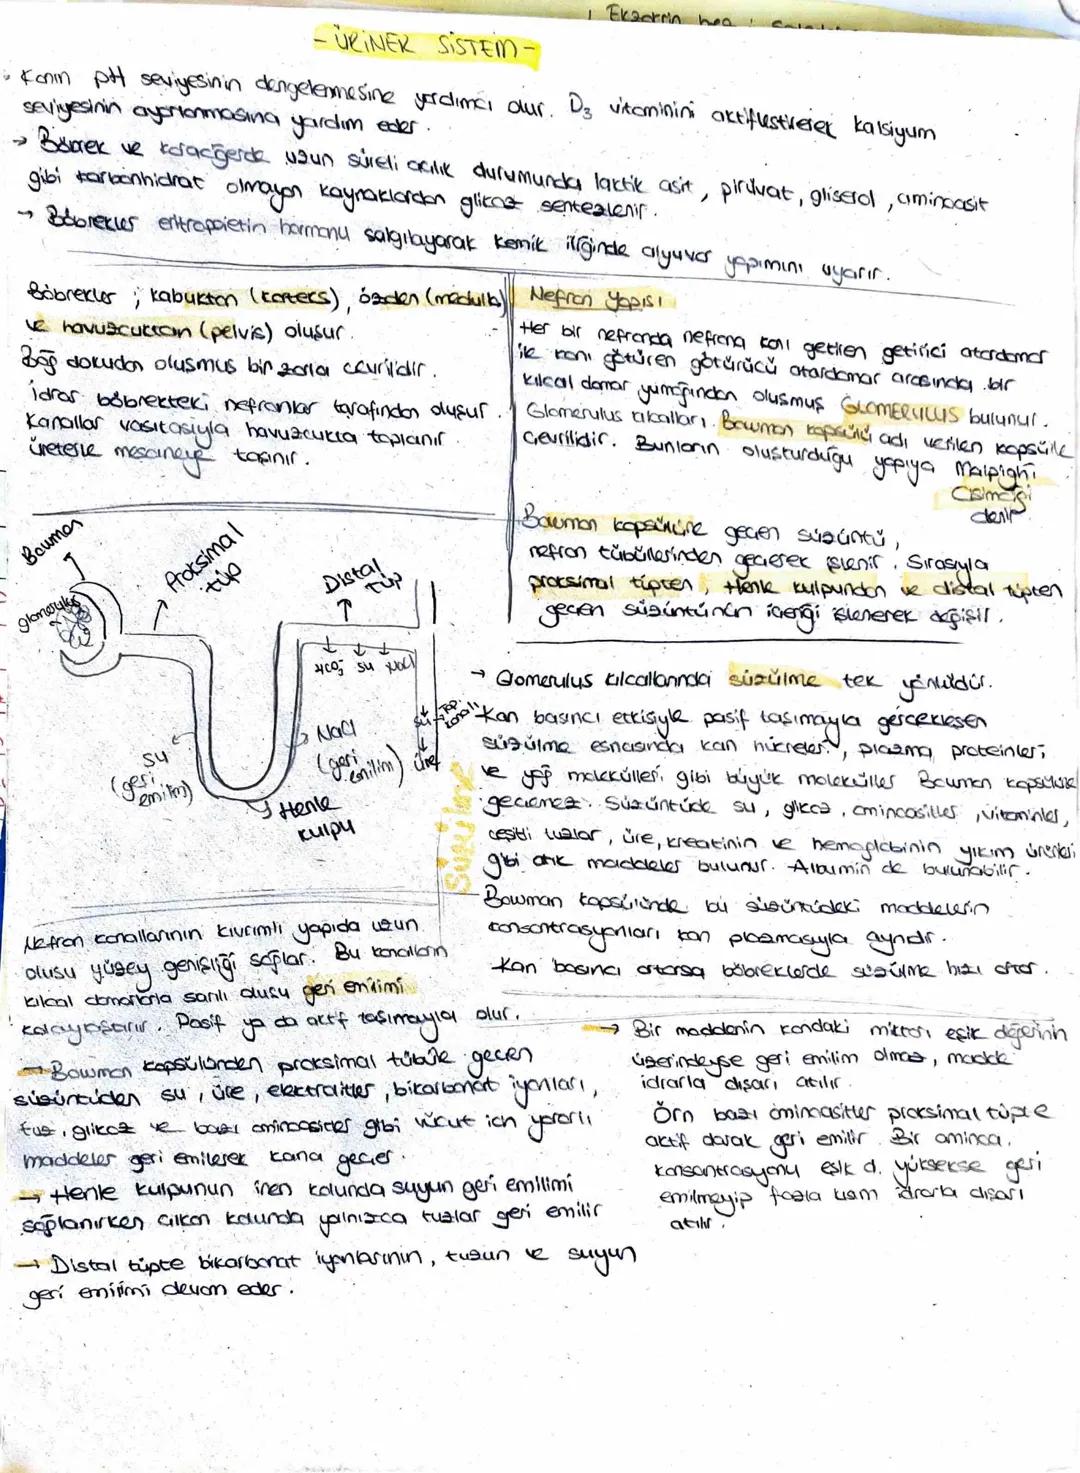 Ekzokrin
- ÜRİNER SİSTEM -
Kanın pH seviyesinin dengelenmesine yardımcı olur. D3 vitaminini aktifleştirerek kalsiyum
seviyesinin ayarlanmasına yardım eder.
→ Böbrek ve karaciğerde uzun süreli açlık durumunda laktik asit, pirüvat, gliserol, aminoasit
gibi karbonhidrat olmayan kaynaklardan glikoz sentezlenir.
→ Böbrekler eritropoietin hormonu salgılayarak kemik iliğinde alyuvar yapımını uyarır.
Böbrekler; kabuktan (korteks), özden (medulla)
ve havuzcuktan (pelvis) oluşur.
Bağ dokudan oluşmuş bir zarla çevrilidir.
İdrar böbrekteki nefronlar tarafından oluşur.
Kanallar vasıtasıyla havuzcukta toplanır
üreterle mesaneye taşınır.
Nefron Yapısı
Her bir nefronda nefrona kanı getiren getirici atardamar
ile kanı götüren götürücü atardamar arasında bir
kılcal damar yumağından oluşmuş GLOMERULUS bulunur.
Glomerulus kılcalları Bowman kapsülü adı verilen kapsülle
çevrilidir. Bunların oluşturduğu yapıya Malpighi
Cisimciği
denir
Bowman kapsülüne geçen süzüntü,
nefron tübüllerinden geçerek işlenir. Sırasıyla
proksimal tüpten, Henle kulpundan ve distal tüpten
geçen süzüntünün içeriği işlenerek değişir.
Bowman
glomerulus
Proksimal
tüp
Distal
tüp
HCO3⁻ su NaCl
su
Top.
kanalı
üre
NaCl
(geri
emilim)
su
(geri
emilim)
Henle
kulpu
Süzülme
→ Glomerulus kılcallarındaki süzülme tek yönlüdür.
Kan basıncı etkisiyle pasif taşımayla gerçekleşen
süzülme esnasında kan hücreleri, plazma proteinleri
ve yağ molekülleri gibi büyük moleküller Bowman kapsülüne
geçemez. Süzüntüde su, glikoz, aminoasitler, vitaminler,
çeşitli tuzlar, üre, kreatinin ve hemoglobinin yıkım ürünleri
gibi atık maddeler bulunur. Albumin de bulunabilir.
Bowman kapsülünde bu süzüntüdeki maddelerin
konsantrasyonları kan plazmasıyla aynıdır.
Kan basıncı artarsa böbreklerde süzülme hızı artar.
Nefron kanallarının kıvrımlı yapıda uzun
oluşu yüzey genişliği sağlar. Bu kanalların
kılcal damarlarla sarılı oluşu geri emilimi
kolaylaştırır. Pasif ya da aktif taşımayla olur.
→ Bowman kapsülünden proksimal tübüle geçen
süzüntüden su, üre, elektrolitler, bikarbonat iyonları,
tuz, glikoz ve bazı aminoasitler gibi vücut için yararlı
maddeler geri emilerek kana geçer.
→ Henle kulpunun inen kolunda suyun geri emilimi
sağlanırken çıkan kolunda yalnızca tuzlar geri emilir
→ Distal tüpte bikarbonat iyonlarının, tuzun ve suyun
geri emilimi devam eder.
→ Bir maddenin kandaki miktarı eşik değerinin
üzerindeyse geri emilim olmaz, madde
idrarla dışarı atılır.
Örn bazı aminoasitler proksimal tüpte
aktif olarak geri emilir. Bir aminoa.
konsantrasyonu eşik d. yüksekse geri
emilmeyip fazla kısım idrarla dışarı
atılır.